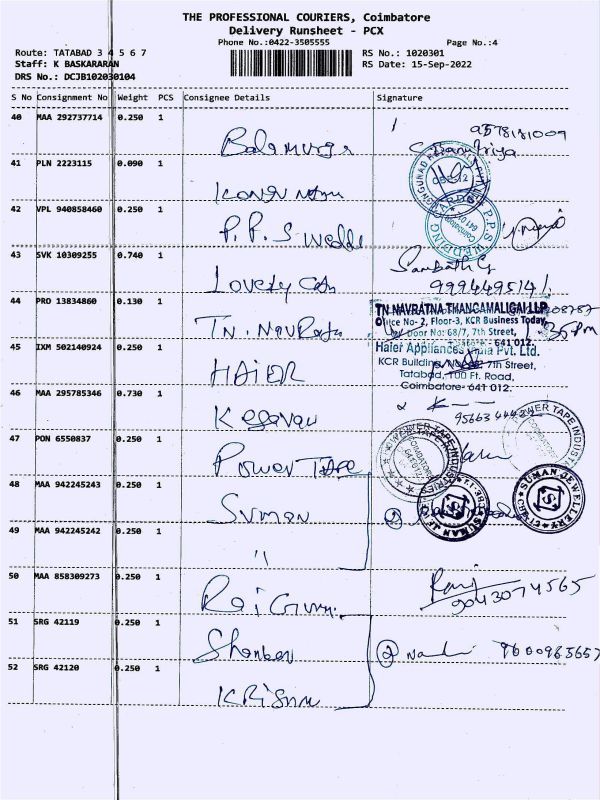 THE PROFESSIONAL COURIERS, Coimbatore
Delivery Runsheet - PCX
Phone No.:0422-3505555
Page No.:4
Route: TATABAD 3 4 5 6 7
RS No.: 1020301
Staff: K BASKARARAN
RS Date: 15-Sep-2022
DRS No.: DCJB102030104
S No Consignment No Weight PCS Consignee Details Signature
40 MAA 292737714 0.250 1
Balamurga
9578181009
41 PLN 2223115 0.090 1
42 VPL 940858460 0.250 1
P.P.S Wedd
P.P.S WEDDING CARDS
Coimbatore
43 SVK 10309255 0.740 1
Lovely
Sambath G
9994495141
44 PRO 13834860 0.130 1
TN. NavRatn
TN NAVRATNA THANGAMALIGAI LLP
Office No- 2, Floor-3, KCR Business Today,
Door No: 68/7, 7th Street,
1.35 Pm
45 IXM 502140924 0.250 1
HAIER
Haier Appliances India Pvt. Ltd.
KCR Building, 7th Street,
Tatabad, 100 Ft. Road,
Coimbatore- 641 012.
46 MAA 295785346 0.730 1
Kesavan
47 PON 6550837 0.250 1
Power Tape
POWER TAPE INDUSTRIES
48 MAA 942245243 0.250 1
Suman
2
SUMAN JEWELLERY
49 MAA 942245242 0.250 1
"
50 MAA 858309273 0.250 1
Raj
9043074565
51 SRG 42119 0.250 1
Shanker
2
9600965657
52 SRG 42120 0.250 1
KRISHN